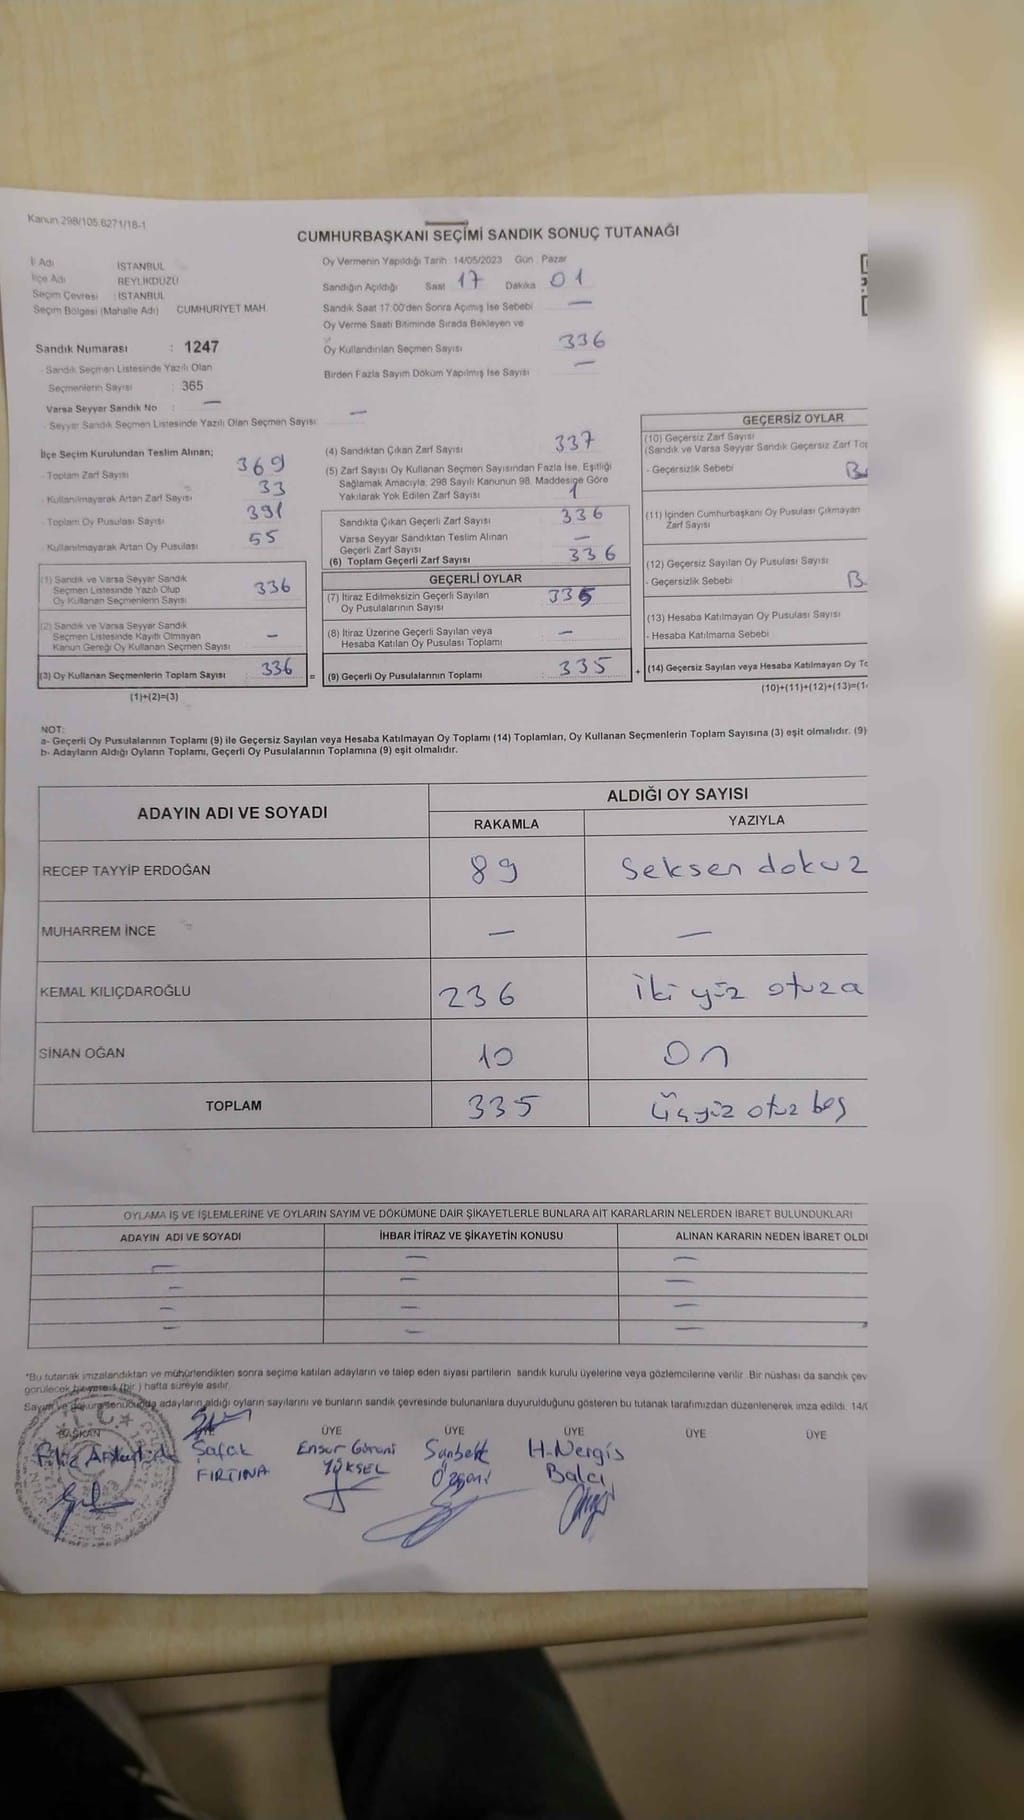 Kanun 298/105.6271/18-1
CUMHURBAŞKANI SEÇİMİ SANDIK SONUÇ TUTANAĞI
İl Adı İSTANBUL
İlçe Adı BEYLİKDÜZÜ
Seçim Çevresi : İSTANBUL
Seçim Bölgesi (Mahalle Adı) CUMHURİYET MAH.
Oy Vermenin Yapıldığı Tarih 14/05/2023 Gün : Pazar
Sandığın Açıldığı Saat 17 Dakika 01
Sandık Saat 17:00'den Sonra Açımış İse Sebebi —
Oy Verme Saati Bitiminde Sırada Bekleyen ve
Oy Kullandırılan Seçmen Sayısı 336
Birden Fazla Sayım Döküm Yapılmış İse Sayısı —
Sandık Numarası : 1247
- Sandık Seçmen Listesinde Yazılı Olan
Seçmenlerin Sayısı : 365
Varsa Seyyar Sandık No : —
- Seyyar Sandık Seçmen Listesinde Yazılı Olan Seçmen Sayısı: —
İlçe Seçim Kurulundan Teslim Alınan;
- Toplam Zarf Sayısı 369
- Kullanılmayarak Artan Zarf Sayısı 33
- Toplam Oy Pusulası Sayısı 391
- Kullanılmayarak Artan Oy Pusulası 55
(1) Sandık ve Varsa Seyyar Sandık
Seçmen Listesinde Yazılı Olup
Oy Kullanan Seçmenlerin Sayısı 336
(2) Sandık ve Varsa Seyyar Sandık
Seçmen Listesinde Kayıtlı Olmayan
Kanun Gereği Oy Kullanan Seçmen Sayısı —
(3) Oy Kullanan Seçmenlerin Toplam Sayısı 336
(1)+(2)=(3)
(4) Sandıktan Çıkan Zarf Sayısı 337
(5) Zarf Sayısı Oy Kullanan Seçmen Sayısından Fazla İse, Eşitliği
Sağlamak Amacıyla, 298 Sayılı Kanunun 98. Maddesine Göre
Yakılarak Yok Edilen Zarf Sayısı 1
Sandıkta Çıkan Geçerli Zarf Sayısı 336
Varsa Seyyar Sandıktan Teslim Alınan
Geçerli Zarf Sayısı —
(6) Toplam Geçerli Zarf Sayısı 336
GEÇERLİ OYLAR
(7) İtiraz Edilmeksizin Geçerli Sayılan
Oy Pusulalarının Sayısı 335
(8) İtiraz Üzerine Geçerli Sayılan veya
Hesaba Katılan Oy Pusulası Toplamı —
= (9) Geçerli Oy Pusulalarının Toplamı 335 +
GEÇERSİZ OYLAR
(10) Geçersiz Zarf Sayısı
(Sandık ve Varsa Seyyar Sandık Geçersiz Zarf Top
- Geçersizlik Sebebi B
(11) İçinden Cumhurbaşkanı Oy Pusulası Çıkmayan
Zarf Sayısı
(12) Geçersiz Sayılan Oy Pusulası Sayısı
- Geçersizlik Sebebi B
(13) Hesaba Katılmayan Oy Pusulası Sayısı
- Hesaba Katılmama Sebebi
(14) Geçersiz Sayılan veya Hesaba Katılmayan Oy To
(10)+(11)+(12)+(13)=(1
NOT:
a- Geçerli Oy Pusulalarının Toplamı (9) ile Geçersiz Sayılan veya Hesaba Katılmayan Oy Toplamı (14) Toplamları, Oy Kullanan Seçmenlerin Toplam Sayısına (3) eşit olmalıdır. (9)
b- Adayların Aldığı Oyların Toplamı, Geçerli Oy Pusulalarının Toplamına (9) eşit olmalıdır.
ADAYIN ADI VE SOYADI ALDIĞI OY SAYISI
RAKAMLA YAZIYLA
RECEP TAYYİP ERDOĞAN 89 Seksen dokuz
MUHARREM İNCE — —
KEMAL KILIÇDAROĞLU 236 iki yüz otuza
SİNAN OĞAN 10 On
TOPLAM 335 üçyüz otuz beş
OYLAMA İŞ VE İŞLEMLERİNE VE OYLARIN SAYIM VE DÖKÜMÜNE DAİR ŞİKAYETLERLE BUNLARA AİT KARARLARIN NELERDEN İBARET BULUNDUKLARI
ADAYIN ADI VE SOYADI İHBAR İTİRAZ VE ŞİKAYETİN KONUSU ALINAN KARARIN NEDEN İBARET OLD
— — —
— — —
— — —
— — —
*Bu tutanak imzalandıktan ve mühürlendikten sonra seçime katılan adayların ve talep eden siyasi partilerin sandık kurulu üyelerine veya gözlemcilerine verilir. Bir nüshası da sandık çev
görülecek bir yere 1 (bir ) hafta süreyle asılır.
Sayım ve döküm sonucunda adayların aldığı oyların sayılarını ve bunların sandık çevresinde bulunanlara duyurulduğunu gösteren bu tutanak tarafımızdan düzenlenerek imza edildi. 14/0
BAŞKAN ÜYE ÜYE ÜYE ÜYE ÜYE
Filiz Şafak Ensar Yüksel H. Nergis
FIRTINA Balcı
T.C.